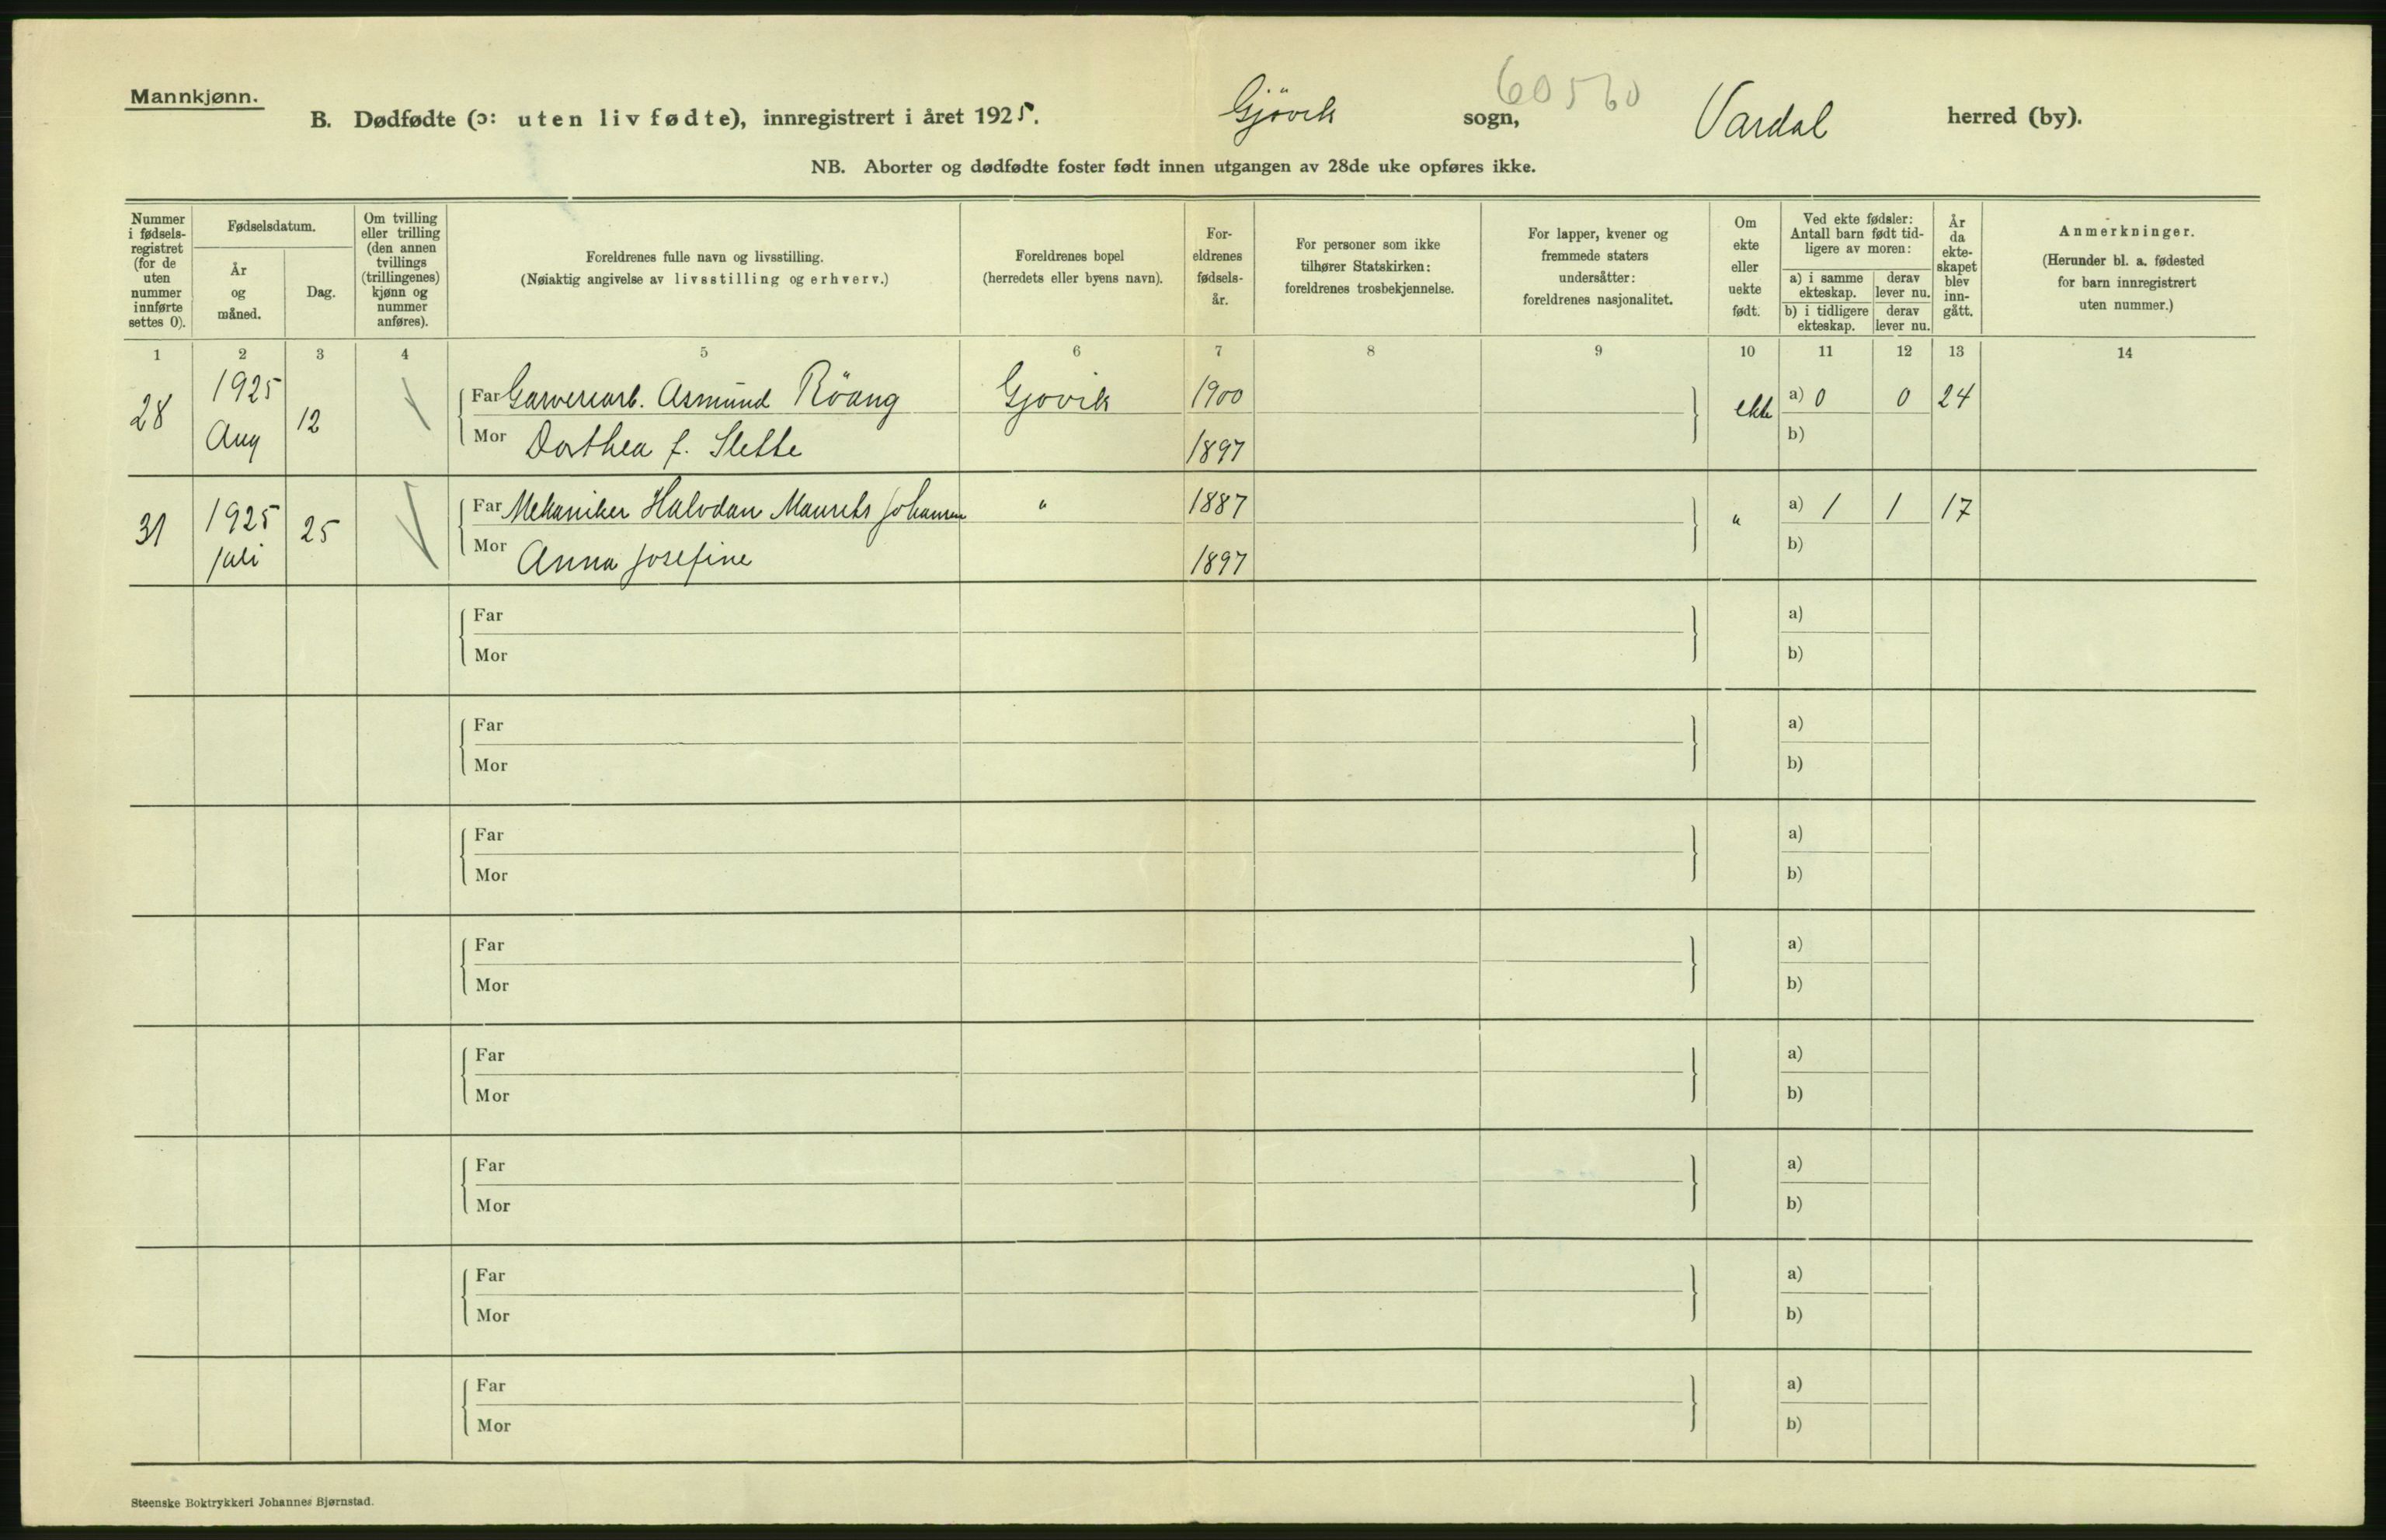 Mannkjønn.
60560
B. Dødfødte (ɔ: uten liv fødte), innregistrert i året 1925. Gjövik sogn, Vardal herred (by).
NB. Aborter og dødfødte foster født innen utgangen av 28de uke opføres ikke.
Nummer i fødsels-registret (for de uten nummer innførte settes 0).
Fødselsdatum.
År og måned.
Dag.
Om tvilling eller trilling (den annen tvillings (trillingenes) kjønn og nummer anføres).
Foreldrenes fulle navn og livsstilling.
(Nøiaktig angivelse av livsstilling og erhverv.)
Foreldrenes bopel
(herredets eller byens navn).
For-eldrenes fødsels-år.
For personer som ikke tilhører Statskirken: foreldrenes trosbekjennelse.
For lapper, kvener og fremmede staters undersåtter: foreldrenes nasjonalitet.
Om ekte eller uekte født.
Ved ekte fødsler: Antall barn født tid-ligere av moren:
a) i samme ekteskap. derav lever nu.
b) i tidligere ekteskap. derav lever nu.
År da ekte-skapet blev inn-gått.
Anmerkninger.
(Herunder bl. a. fødested for barn innregistrert uten nummer.)
1 2 3 4 5 6 7 8 9 10 11 12 13 14
28 1925 Aug 12 Far Garveriarb. Asmund Röang Gjövik 1900 ekte a) 0 0 24
Mor Dorthea f. Slette 1897 b)
31 1925 juli 25 Far Mekaniker Halvdan Maurits Johansen " 1887 " a) 1 1 17
Mor Anna Josefine 1897 b)
Far a)
Mor b)
Far a)
Mor b)
Far a)
Mor b)
Far a)
Mor b)
Far a)
Mor b)
Far a)
Mor b)
Far a)
Mor b)
Far a)
Mor b)
Steenske Boktrykkeri Johannes Bjørnstad.